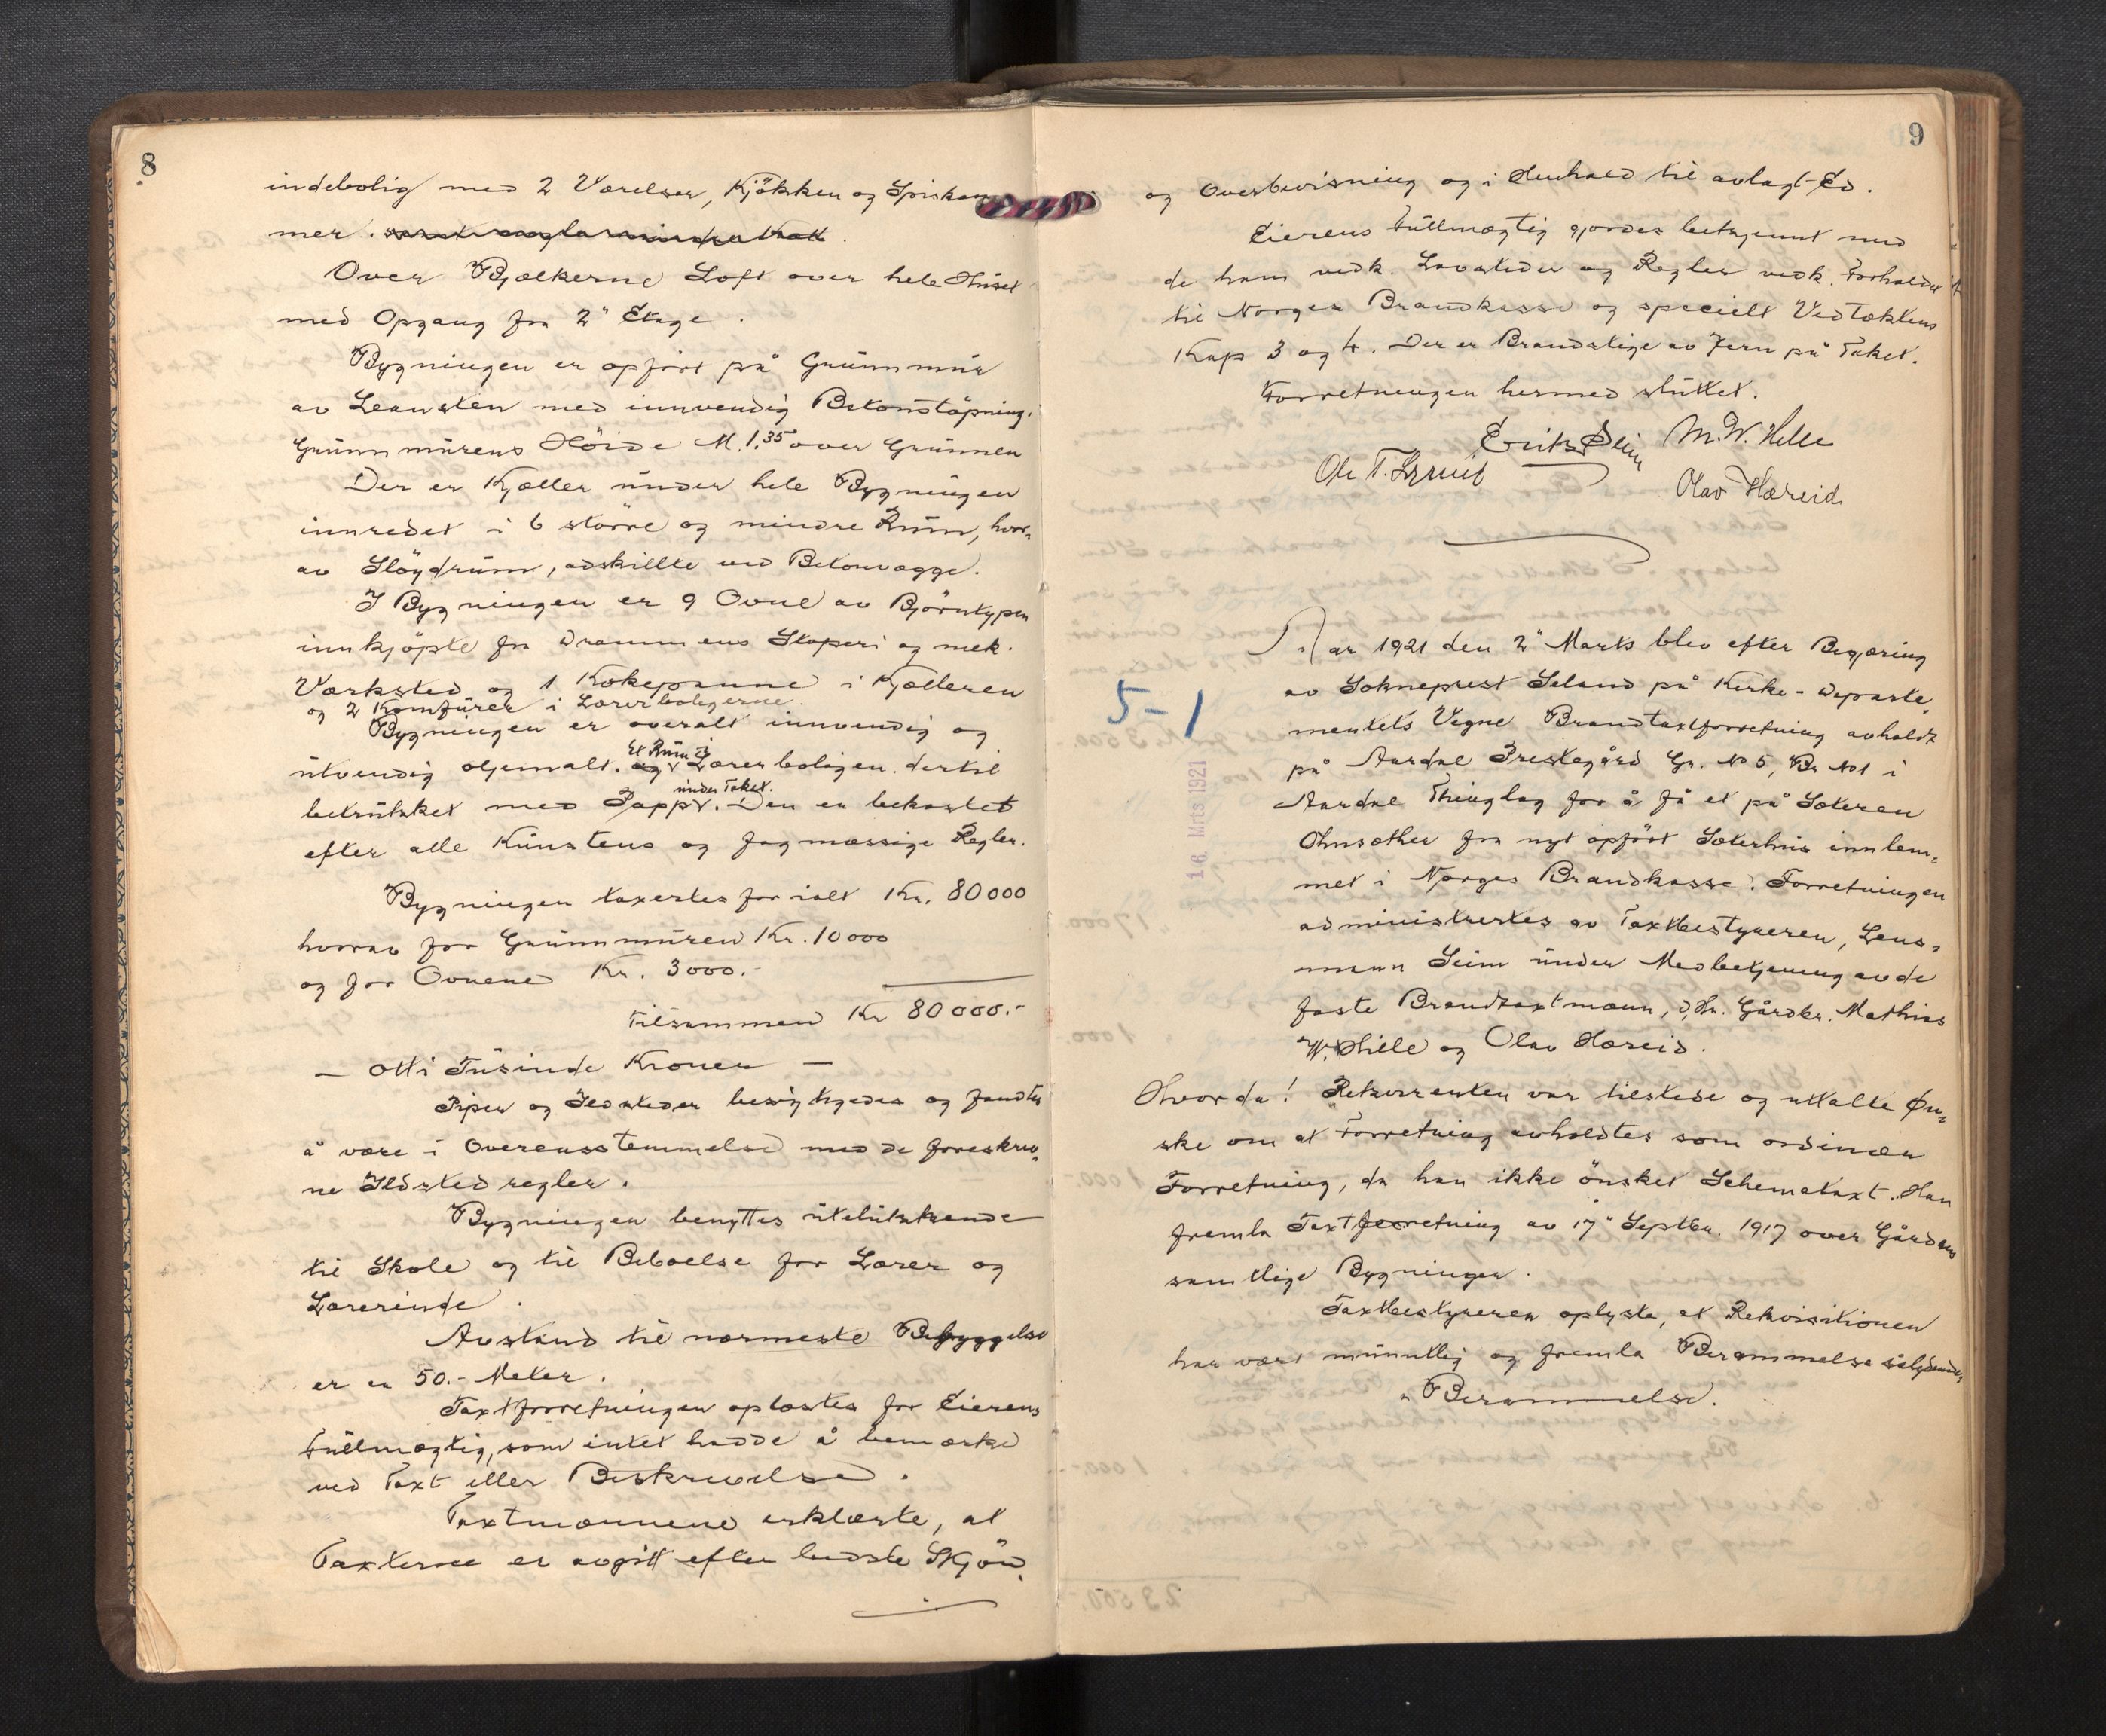 8
indebolig med 2 Værelser, Kjökken og Spiskam
mer.
Over Bjælkerne Loft over hele Huset
med Opgang fra 2" Etage.
Bygningen er opfört på Grunnmur
av Leansten med innvendig Betonstöpning.
Grunnmurens Höide M. 1.35 over Grunnen
Der er Kjæller under hele Bygningen
innredet i 6 större og mindre Rum, hvor-
av Slöydrum, adskillte ved Betonvægge.
I Bygningen er 9 Ovne av Björntypen
innkjöpte fra Drammens Støperi og mek.
Værksted og 1 Kokepanne i Kjælleren
og 2 Komfurer i Lærerboligerne.
Bygningen er overalt innvendig og
utvendig oljemalt. og Et Rum i Lærerboligen dertil
betrukket med Papp under Taket. Den er bekostet
efter alle Kunstens og fagmæssige Regler.
Bygningen taxertes for ialt Kr. 80000
hvorav for Grunnmuren Kr. 10000
og for Ovnene Kr. 3000.-
Tilsammen Kr 80000.-
— Otti Tusinde Kroner —
Piper og Ildsteder besigtigedes og fandtes
å være i Overensstemmelse med de foreskrev-
ne Ildstedregler.
Bygningen benyttes utelukkende
til Skole og til Beboelse for Lærer og
Lærerinde.
Avstand til nærmeste Bebyggelse
er ca 50.- Meter.
Taxtforretningen oplæstes for Eierens
Fullmægtig, som intet hadde å bemærke
ved Taxt eller Beskrivelse.
Taxtmænnene erklærte, at
Taxterne er avgitt efter bedste Skjön
9
og Overbevisning og i Henhold til avlagt Ed.
Eierens Fullmægtig gjordes bekjennt med
de ham vedk. Lovsteder og Regler vedk. Forholdet
til Norges Brandkasse og specielt Vedtæktens
Kap 3 og 4. Der er Brandstige av Jern på Taket.
Forretningen hermed sluttet.
M. W. Hille
Ole T.
Olav Hæreid
5-1
16. Mrs 1921
Aar 1921 den 2" Marts blev efter Begjæring
av Sokneprest Seland på Kirke-Departe-
mentets Vegne Brandtaxtforretning avholdt
på Aardal Prestegård Gr. No 5, Br No 1 i
Aardal Thinglag for å få et på Sæteren
fra nyt opfört Sæterhus innlem-
met i Norges Brandkasse. Forretningen
administrertes av Taxtbestyreren, Lens-
mann Seim under Medbetjening av de
faste Brandtaxtmænn, d,Hr. Gårdbr. Mathias
W. Hille og Olav Hæreid.
Hvorda! Rekvirenten var tilstede og uttalte Øn-
ske om at Forretning avholdtes som ordinær
Forretning, da han ikke önsket Schemataxt. Han
fremla Taxtforretning av 17" Septbr. 1917 over Gårdens
samtlige Bygninger.
Taxtbestyreren oplyste, at Rekvisitionen
har vært munntlig og fremla Berammelse sålydende,
" Berammelse.